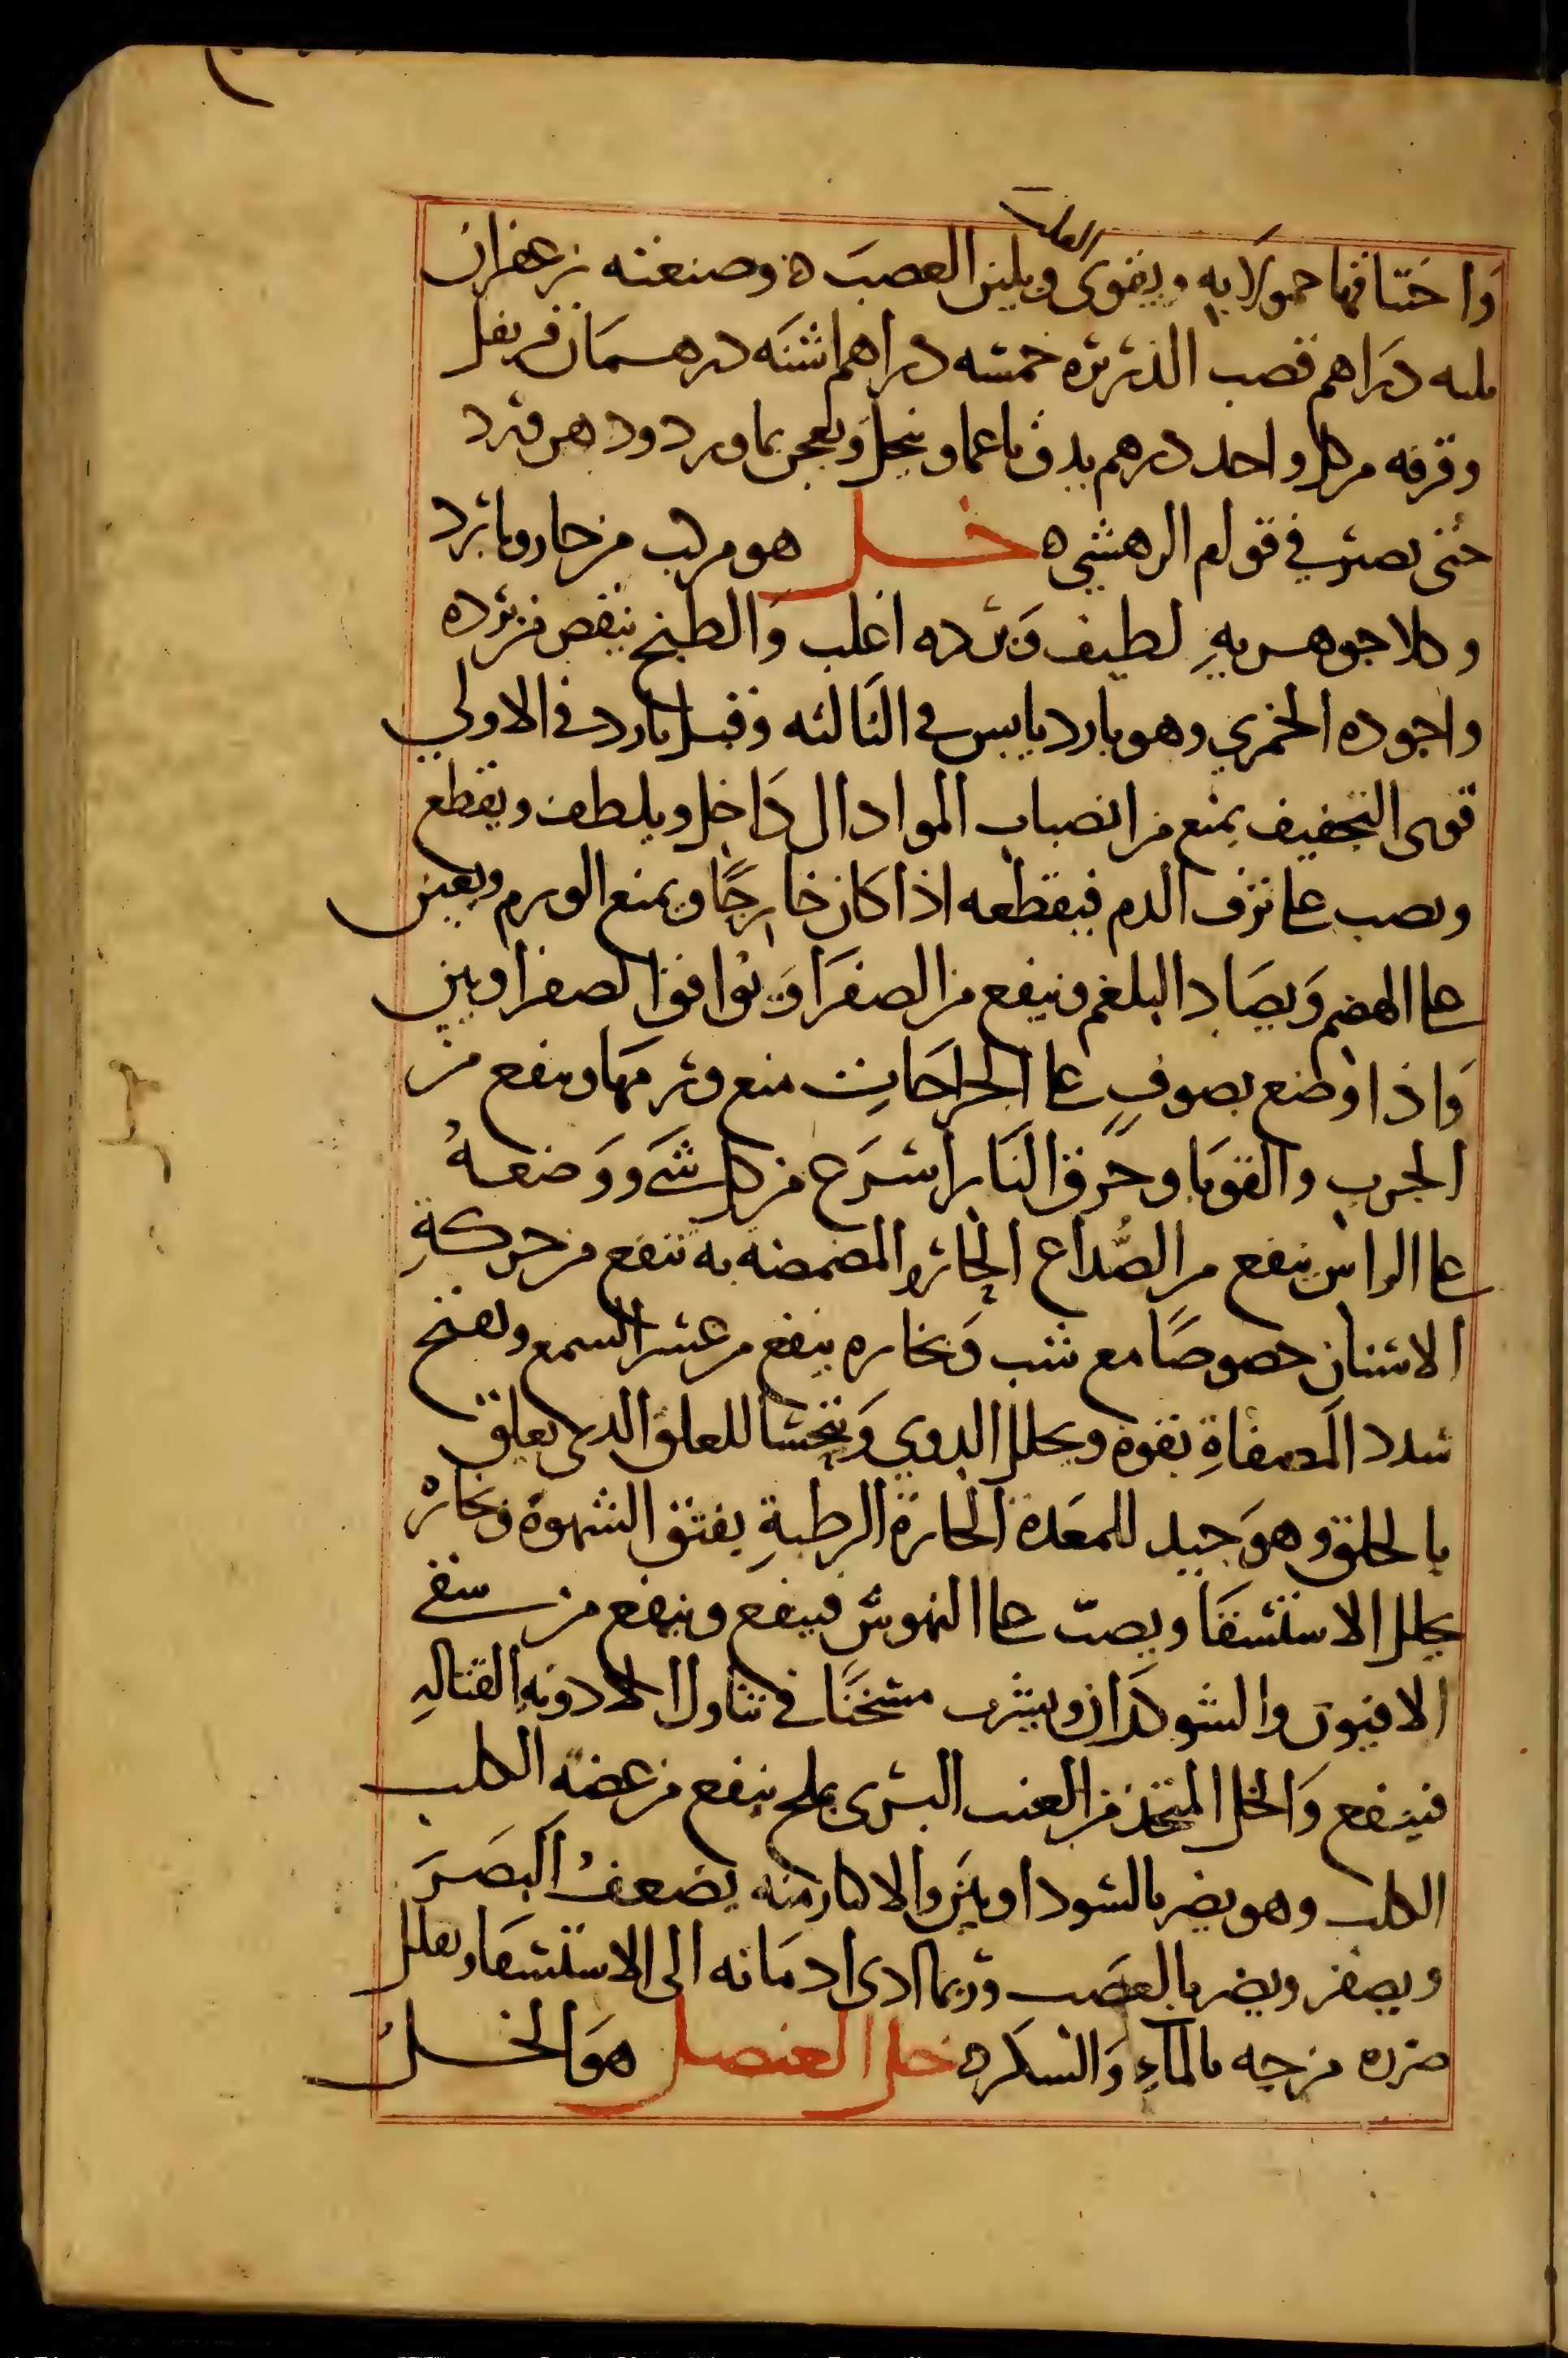 القلب
واختناقها حمولا به ويقوى ويلين العصب ه وصنعته زعفران
ثلثه دراهم قصب الذريره خمسه دراهم اشنه درهمان قرنفل
وقرفه من كل واحد درهم يدق ناعما وينخل ويعجن بماورد ودهن ورد
حتى يصير في قوام الرهشي ه خل هو مركب من حار وبارد
وكلا جوهريه لطيف وبرده اغلب والطبخ ينقص من برده
واجوده الخمري وهو بارد يابس في الثالثه وقيل بارد في الاولي
قوى التجفيف يمنع من انصباب المواد الى داخل ويلطف ويقطع
ويصب على نزف الدم فيقطعه اذا كان خارجًا ويمنع الورم ويعين
على الهضم ويضاد البلغم وينفع من الصفرا ويوافق الصفراويين
واذا وضع بصوف على الجراحات منع ورمها وينفع من
الجرب والقوبا وحرق النار اسرع من كل شي ووضعه
على الراس ينفع من الصُّداع الحار والمضمضه به تنفع من حركة
الاسنان خصوصًا مع شب وبخاره ينفع من عسر السمع ويفتح
سدد المصفاة بقوة ويحلل الدوي ويتحسا للعلق الذى يعلق
بالحلق وهو جيد للمعدة الحارة الرطبة يفتق الشهوة وبخاره
يحلل الاستسقا ويصب على النهوش فينفع وينفع من سقي
الافيون والشوكران ويشرب مسخنًا في تناول الادويه القتاله
فينفع والخل المتخذ من العنب البرى بملح ينفع من عضة الكلب
الكلب وهو يضر بالسوداويين والاكثار منه يضعف البصر
ويصفر ويضر بالعصب وربما ادى ادمانه الى الاستسقا ويقلل
ضرره مزجه بالماء والسكر ه خل العنصل هو الخل